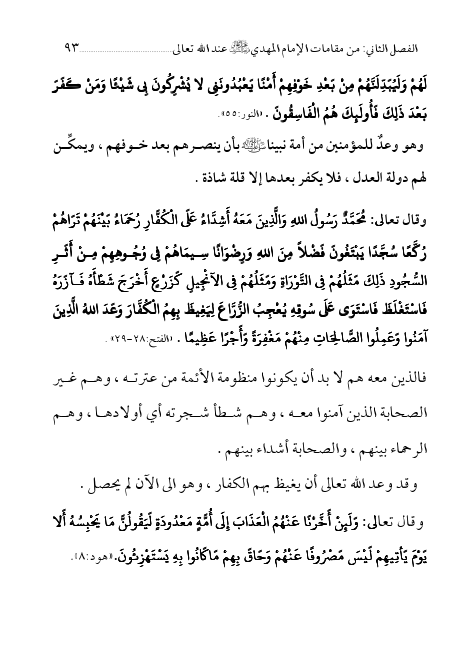 الفصل الثاني: من مقامات الإمام المهدي عند الله تعالى ...................................................... ٩٣
لَهُمْ وَلَيُبَدِّلَنَّهُمْ مِنْ بَعْدِ خَوْفِهِمْ أَمْنًا يَعْبُدُونَنِى لا يُشْرِكُونَ بِى شَيْئًا وَمَنْ كَفَرَ
بَعْدَ ذَلِكَ فَأُولَئِكَ هُمُ الْفَاسِقُونَ . «النور:٥٥».
وهو وعدٌ للمؤمنين من أمة نبينا ﷺ بأن ينصرهم بعد خوفهم ، ويمكِّن
لهم دولة العدل ، فلا يكفر بعدها إلا قلة شاذة .
وقال تعالى: مُحَمَّدٌ رَسُولُ اللهِ وَالَّذِينَ مَعَهُ أَشِدَّاءُ عَلَى الْكُفَّارِ رُحَمَاءُ بَيْنَهُمْ تَرَاهُمْ
رُكَّعًا سُجَّدًا يَبْتَغُونَ فَضْلاً مِنَ اللهِ وَرِضْوَانًا سِيمَاهُمْ فِى وُجُوهِهِمْ مِنْ أَثَرِ
السُّجُودِ ذَلِكَ مَثَلُهُمْ فِى التَّوْرَاةِ وَمَثَلُهُمْ فِى الآنْجِيلِ كَزَرْعٍ أَخْرَجَ شَطْأَهُ فَآزَرَهُ
فَاسْتَغْلَظَ فَاسْتَوَى عَلَى سُوقِهِ يُعْجِبُ الزُّرَّاعَ لِيَغِيظَ بِهِمُ الْكُفَّارَ وَعَدَ اللهُ الَّذِينَ
آمَنُوا وَعَمِلُوا الصَّالِحَاتِ مِنْهُمْ مَغْفِرَةً وَأَجْرًا عَظِيمًا . «الفتح:٢٨-٢٩» .
فالذين معه هم لا بد أن يكونوا منظومة الأئمة من عترته ، وهم غير
الصحابة الذين آمنوا معه ، وهم شطأ شجرته أي أولادها ، وهم
الرحماء بينهم ، والصحابة أشداء بينهم .
وقد وعد الله تعالى أن يغيظ بهم الكفار ، وهو الى الآن لم يحصل .
وقال تعالى: وَلَئِنْ أَخَّرْنَا عَنْهُمُ الْعَذَابَ إِلَى أُمَّةٍ مَعْدُودَةٍ لَيَقُولُنَّ مَا يَحْبِسُهُ أَلا
يَوْمَ يَأْتِيهِمْ لَيْسَ مَصْرُوفًا عَنْهُمْ وَحَاقَ بِهِمْ مَاكَانُوا بِهِ يَسْتَهْزِئُونَ. «هود:٨».